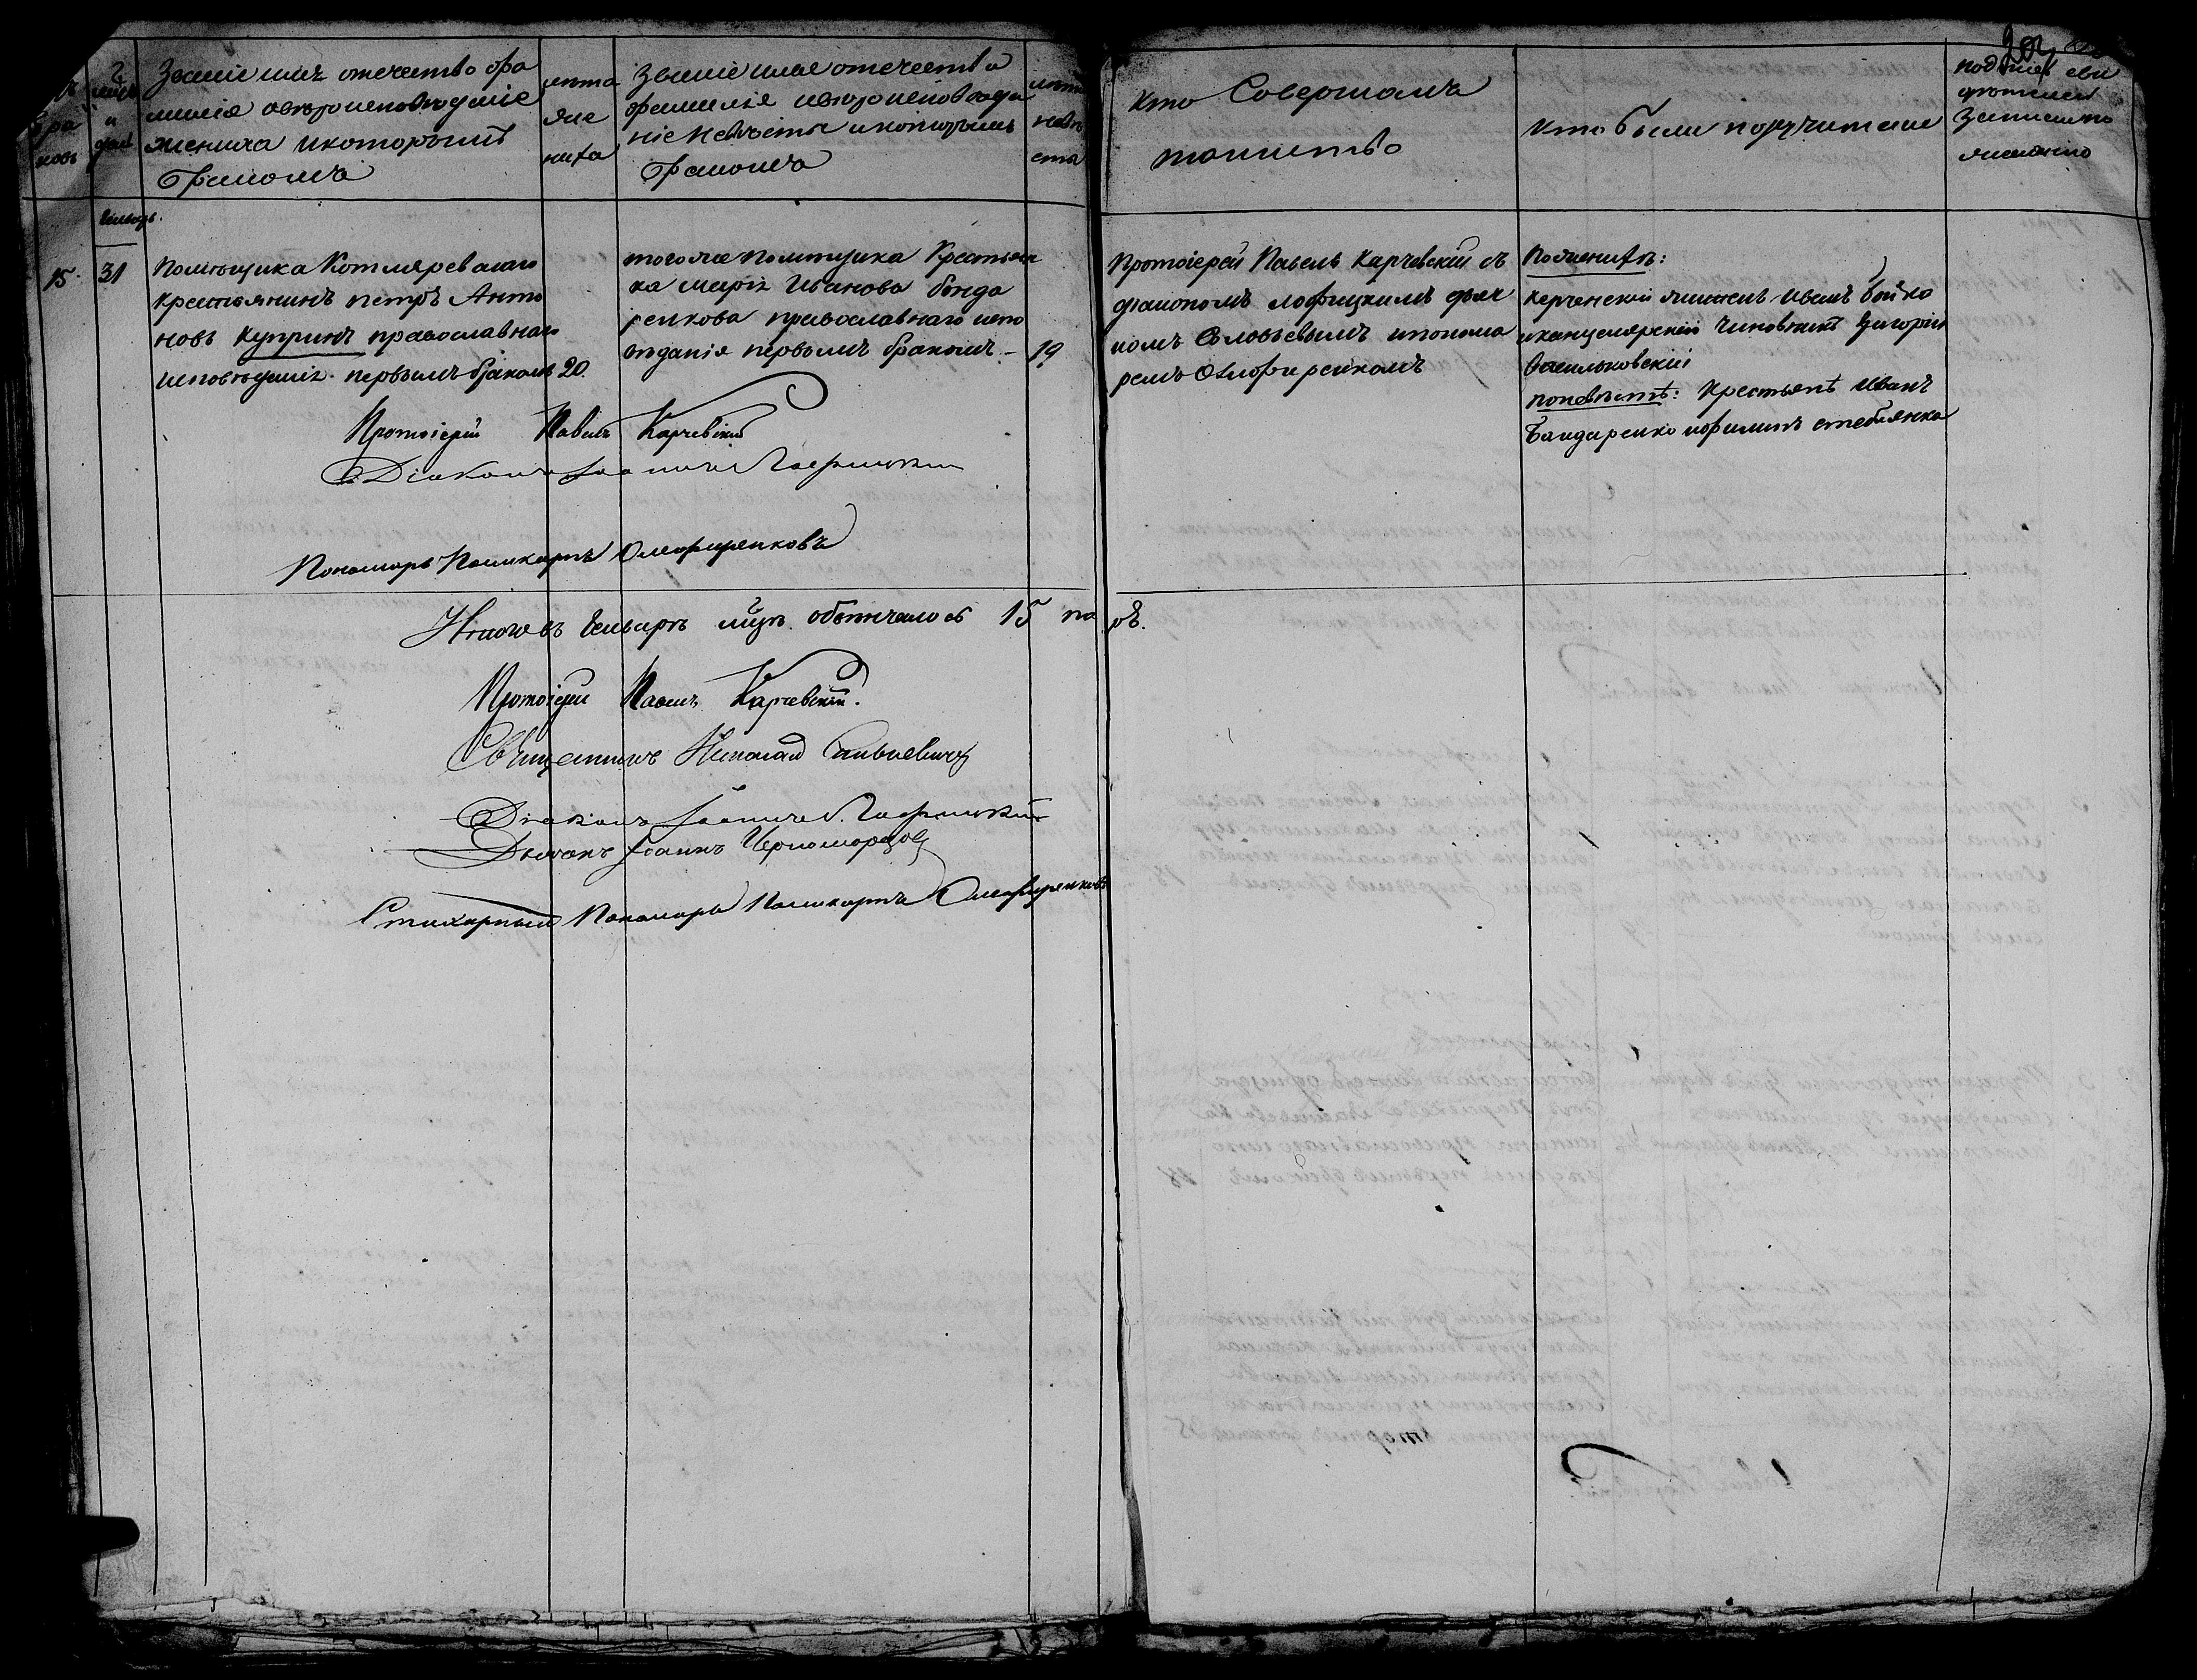 202
бра
ковъ
мѣсяцъ
и
дни
Званіе имя отечество фа
милія икотораго вѣроисповѣданіе
жениха икоторымъ
бракомъ
лѣта
же
ниха
Званіе имя отечество
фамилія икотораго исповѣда
ніе невѣсты икоторымъ
бракомъ
лѣта
невѣ
сты
Кто Совершалъ
таинство
Кто были поручители
подпись сви
дѣтелей
записи по
желанію
Генварь.
15.
31
Помѣщика Котляреваго
крестьянинъ петръ Анто
новъ Купринъ православнаго
исповѣданія первымъ бракомъ
20.
тогоже помѣщика Крестьян
ка Марія Иванова бонда
ренкова православнаго испо
вѣданія первымъ бракомъ –
19
Протоіерей Павелъ Карчевскій съ
діакономъ Лофицкимъ дьяч
комъ Соловьевымъ ипонома
ремъ Олефиренкомъ
Поженихѣ:
Керченскій житель Иванъ бойко
иканцелярскій чиновникъ Григорій
Васильковскій
поневѣстѣ: Крестьяне Иванъ
Бандаренко иофилипъ стеблянко
Протоіерей Павелъ Карчевскій
Діаконъ Іоаннъ Лофицкій
Пономарь Поликарпъ Олефиренковъ
Итого въ Генварѣ мцѣ. обвѣнчалось 15 паръ.
Протоіерей Павелъ Карчевскій.
Священникъ Николай Сильвевичъ
Діаконъ Іоаннъ Лофицкій
Дьячокъ Іоаннъ Черноморцовъ
Стихарный Пономарь Поликарпъ Олефиренковъ